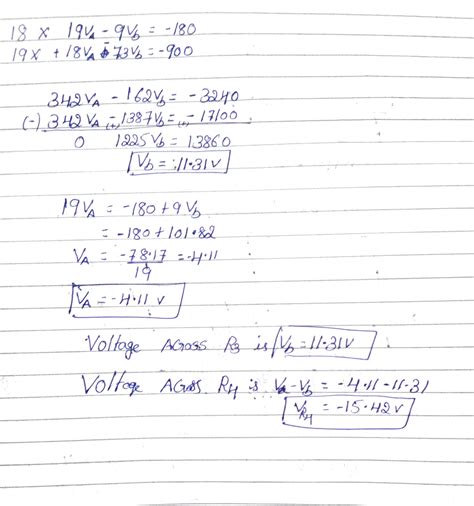 18 x 19VA - 9Vb = -180
19x + 18VA - 73Vb = -900
342VA - 162Vb = -3240
(-) 342VA - 1387Vb = -17100
0 1225Vb = 13860
Vb = 11.31V
19VA = -180 + 9Vb
= -180 + 101.82
VA = -78.17/19 = -4.11
VA = -4.11 V
Voltage Across R3 is Vb = 11.31V
Voltage Across R4 is Va - Vb = -4.11 - 11.31
VR4 = -15.42V